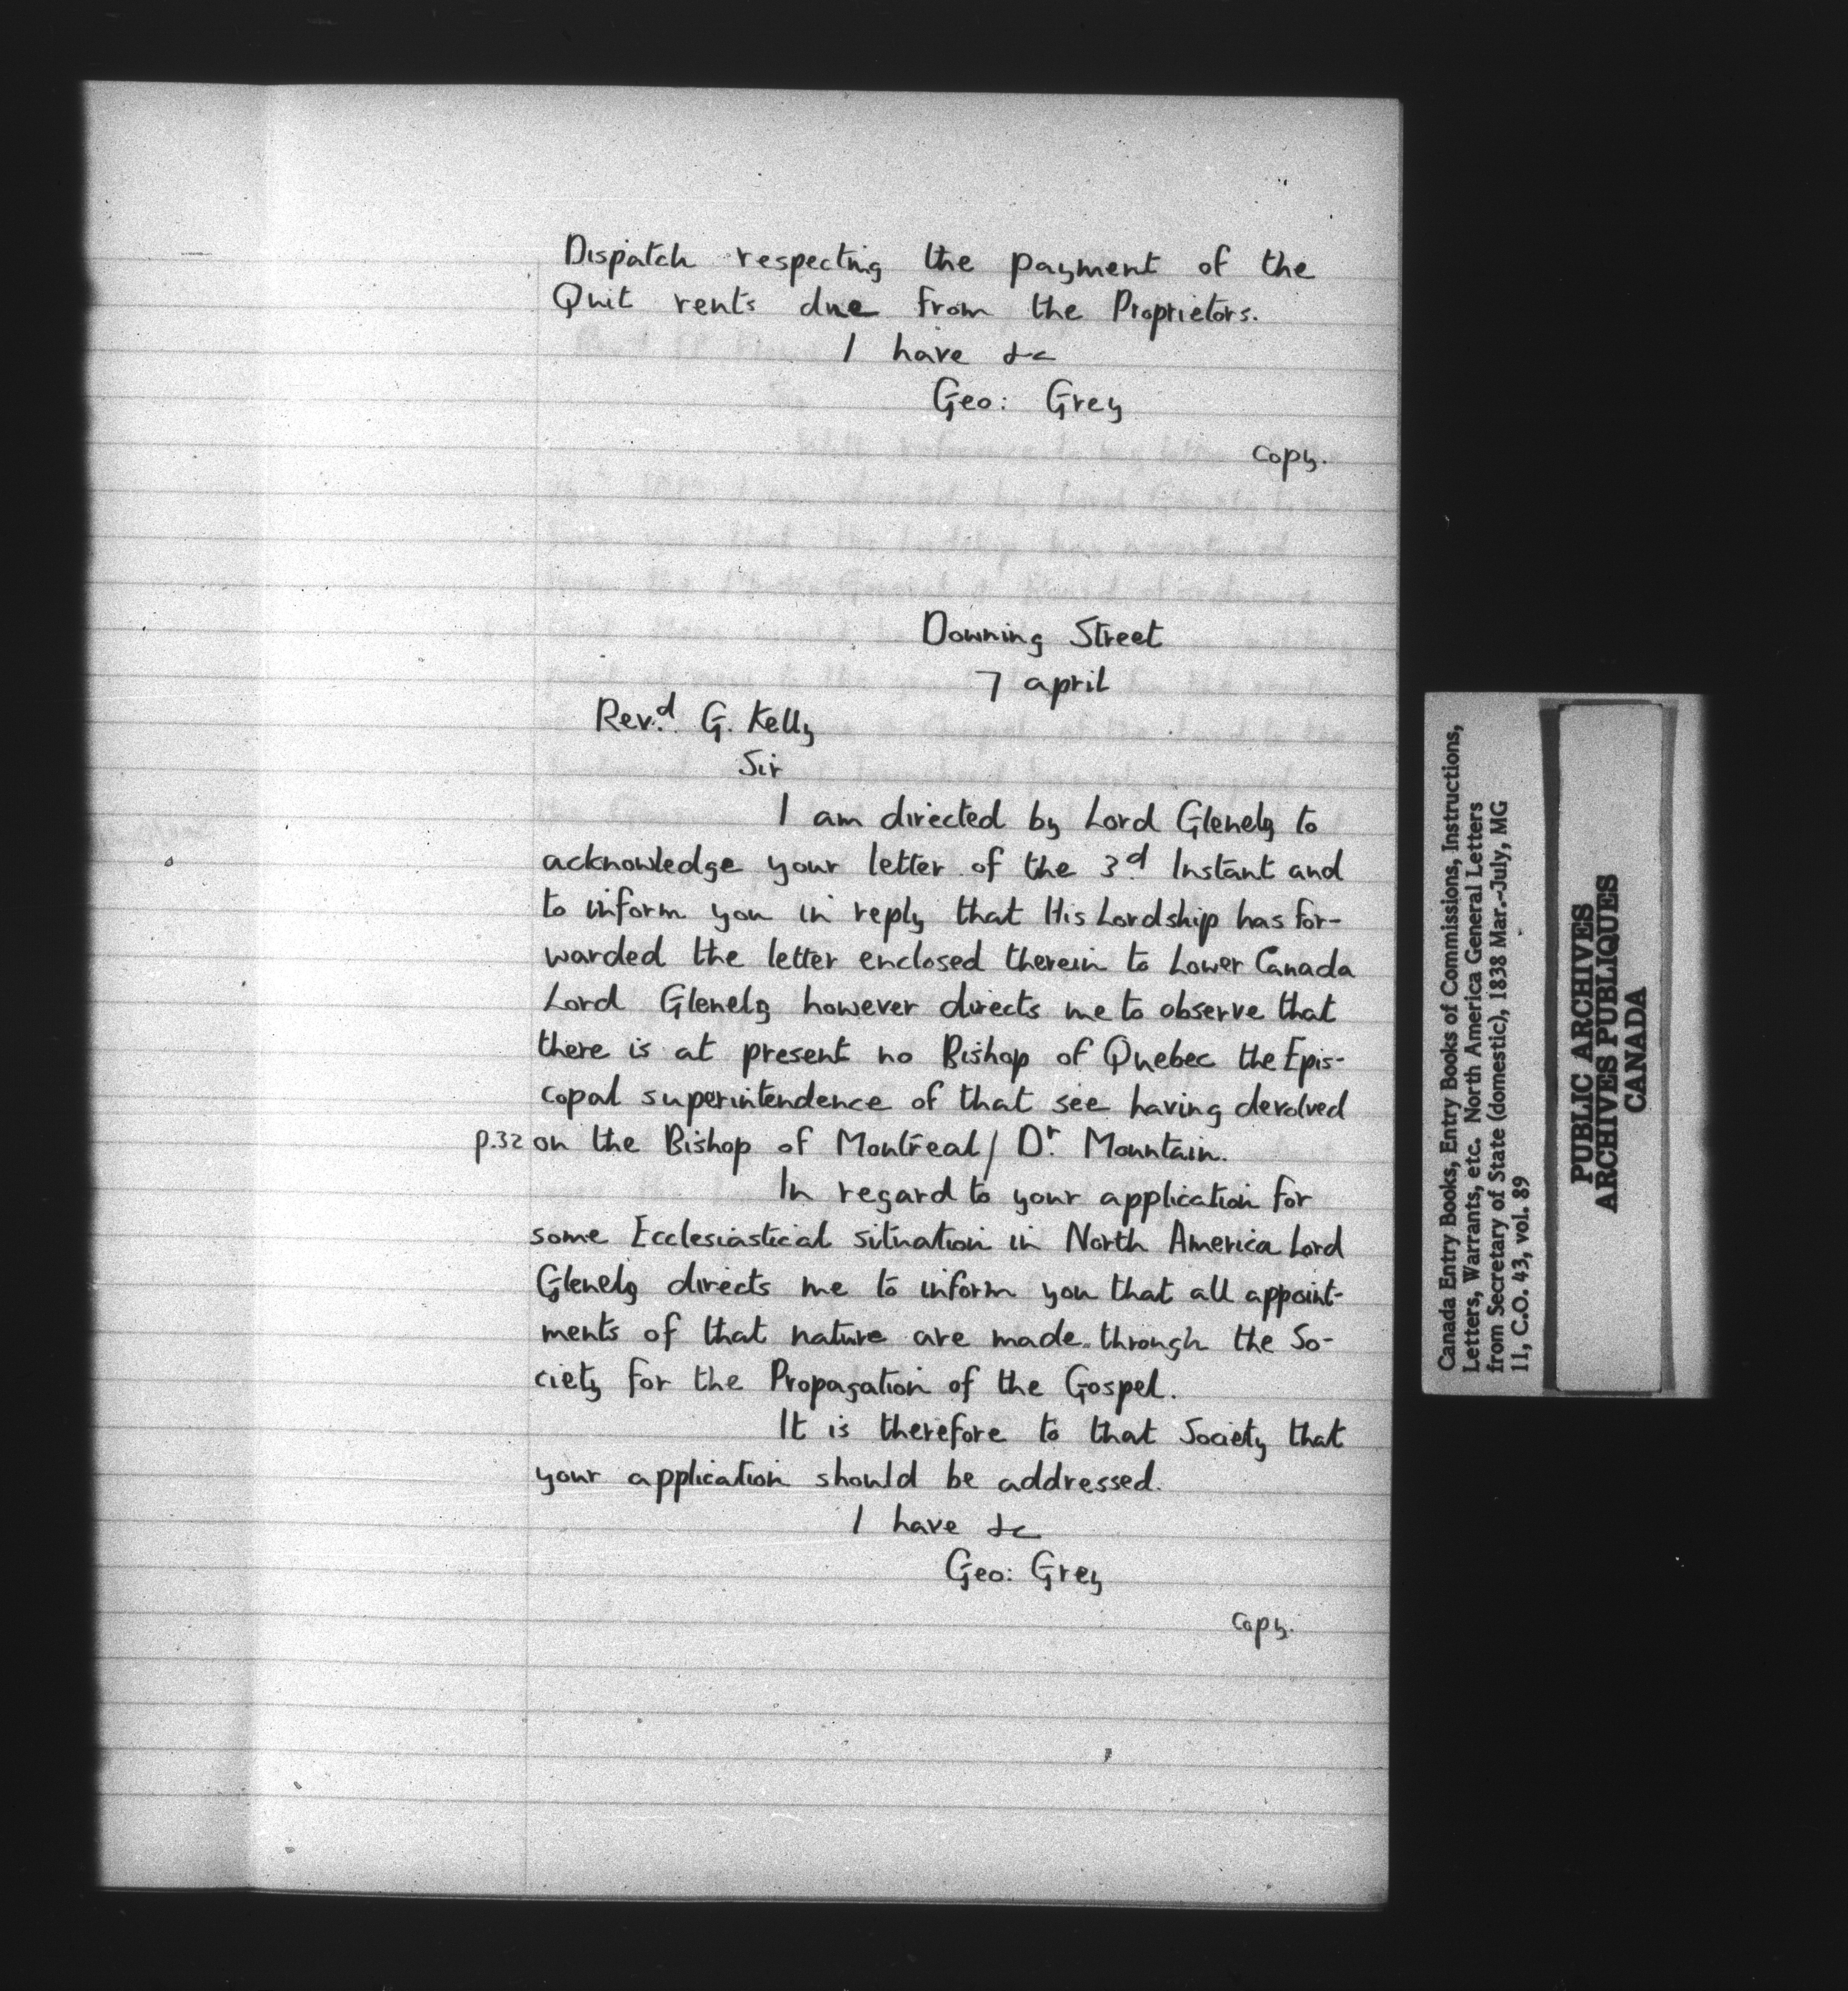 Dispatch respecting the payment of the
Quit rents due from the Proprietors.
I have &c
Geo: Grey
copy.
Downing Street
7 april
Rev.d G. Kelly
Sir
I am directed by Lord Glenelg to
acknowledge your letter of the 3d Instant and
to inform you in reply that His Lordship has for-
warded the letter enclosed therein to Lower Canada
Lord Glenelg however directs me to observe that
there is at present no Bishop of Quebec the Epis-
copal superintendence of that see having devolved
p.32 on the Bishop of Montreal/ Dr. Mountain.
In regard to your application for
some Ecclesiastical situation in North America Lord
Glenelg directs me to inform you that all appoint-
ments of that nature are made through the So-
ciety for the Propagation of the Gospel.
It is therefore to that Society that
your application should be addressed.
I have &c
Geo: Grey
copy.
Canada Entry Books, Entry Books of Commissions, Instructions,
Letters, Warrants, etc. North America General Letters
from Secretary of State (domestic), 1838 Mar.-July, MG
11, C.O. 43, vol. 89
PUBLIC ARCHIVES
ARCHIVES PUBLIQUES
CANADA